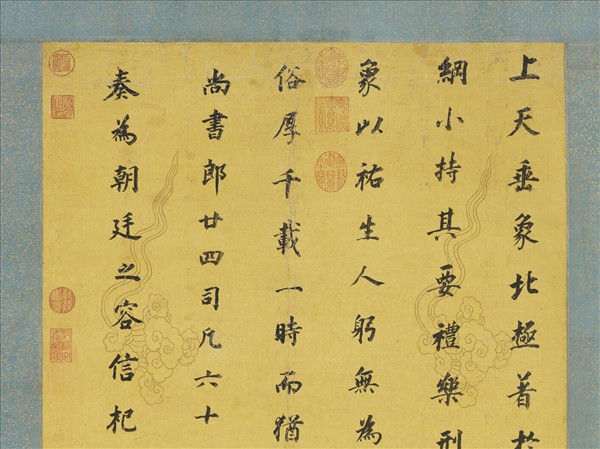 上天垂象北極著於
綱小持其要禮樂刑
象以祐生人躬無為
俗厚千載一時而猶
尚書郎廿四司凡六十
奏為朝廷之容信杞